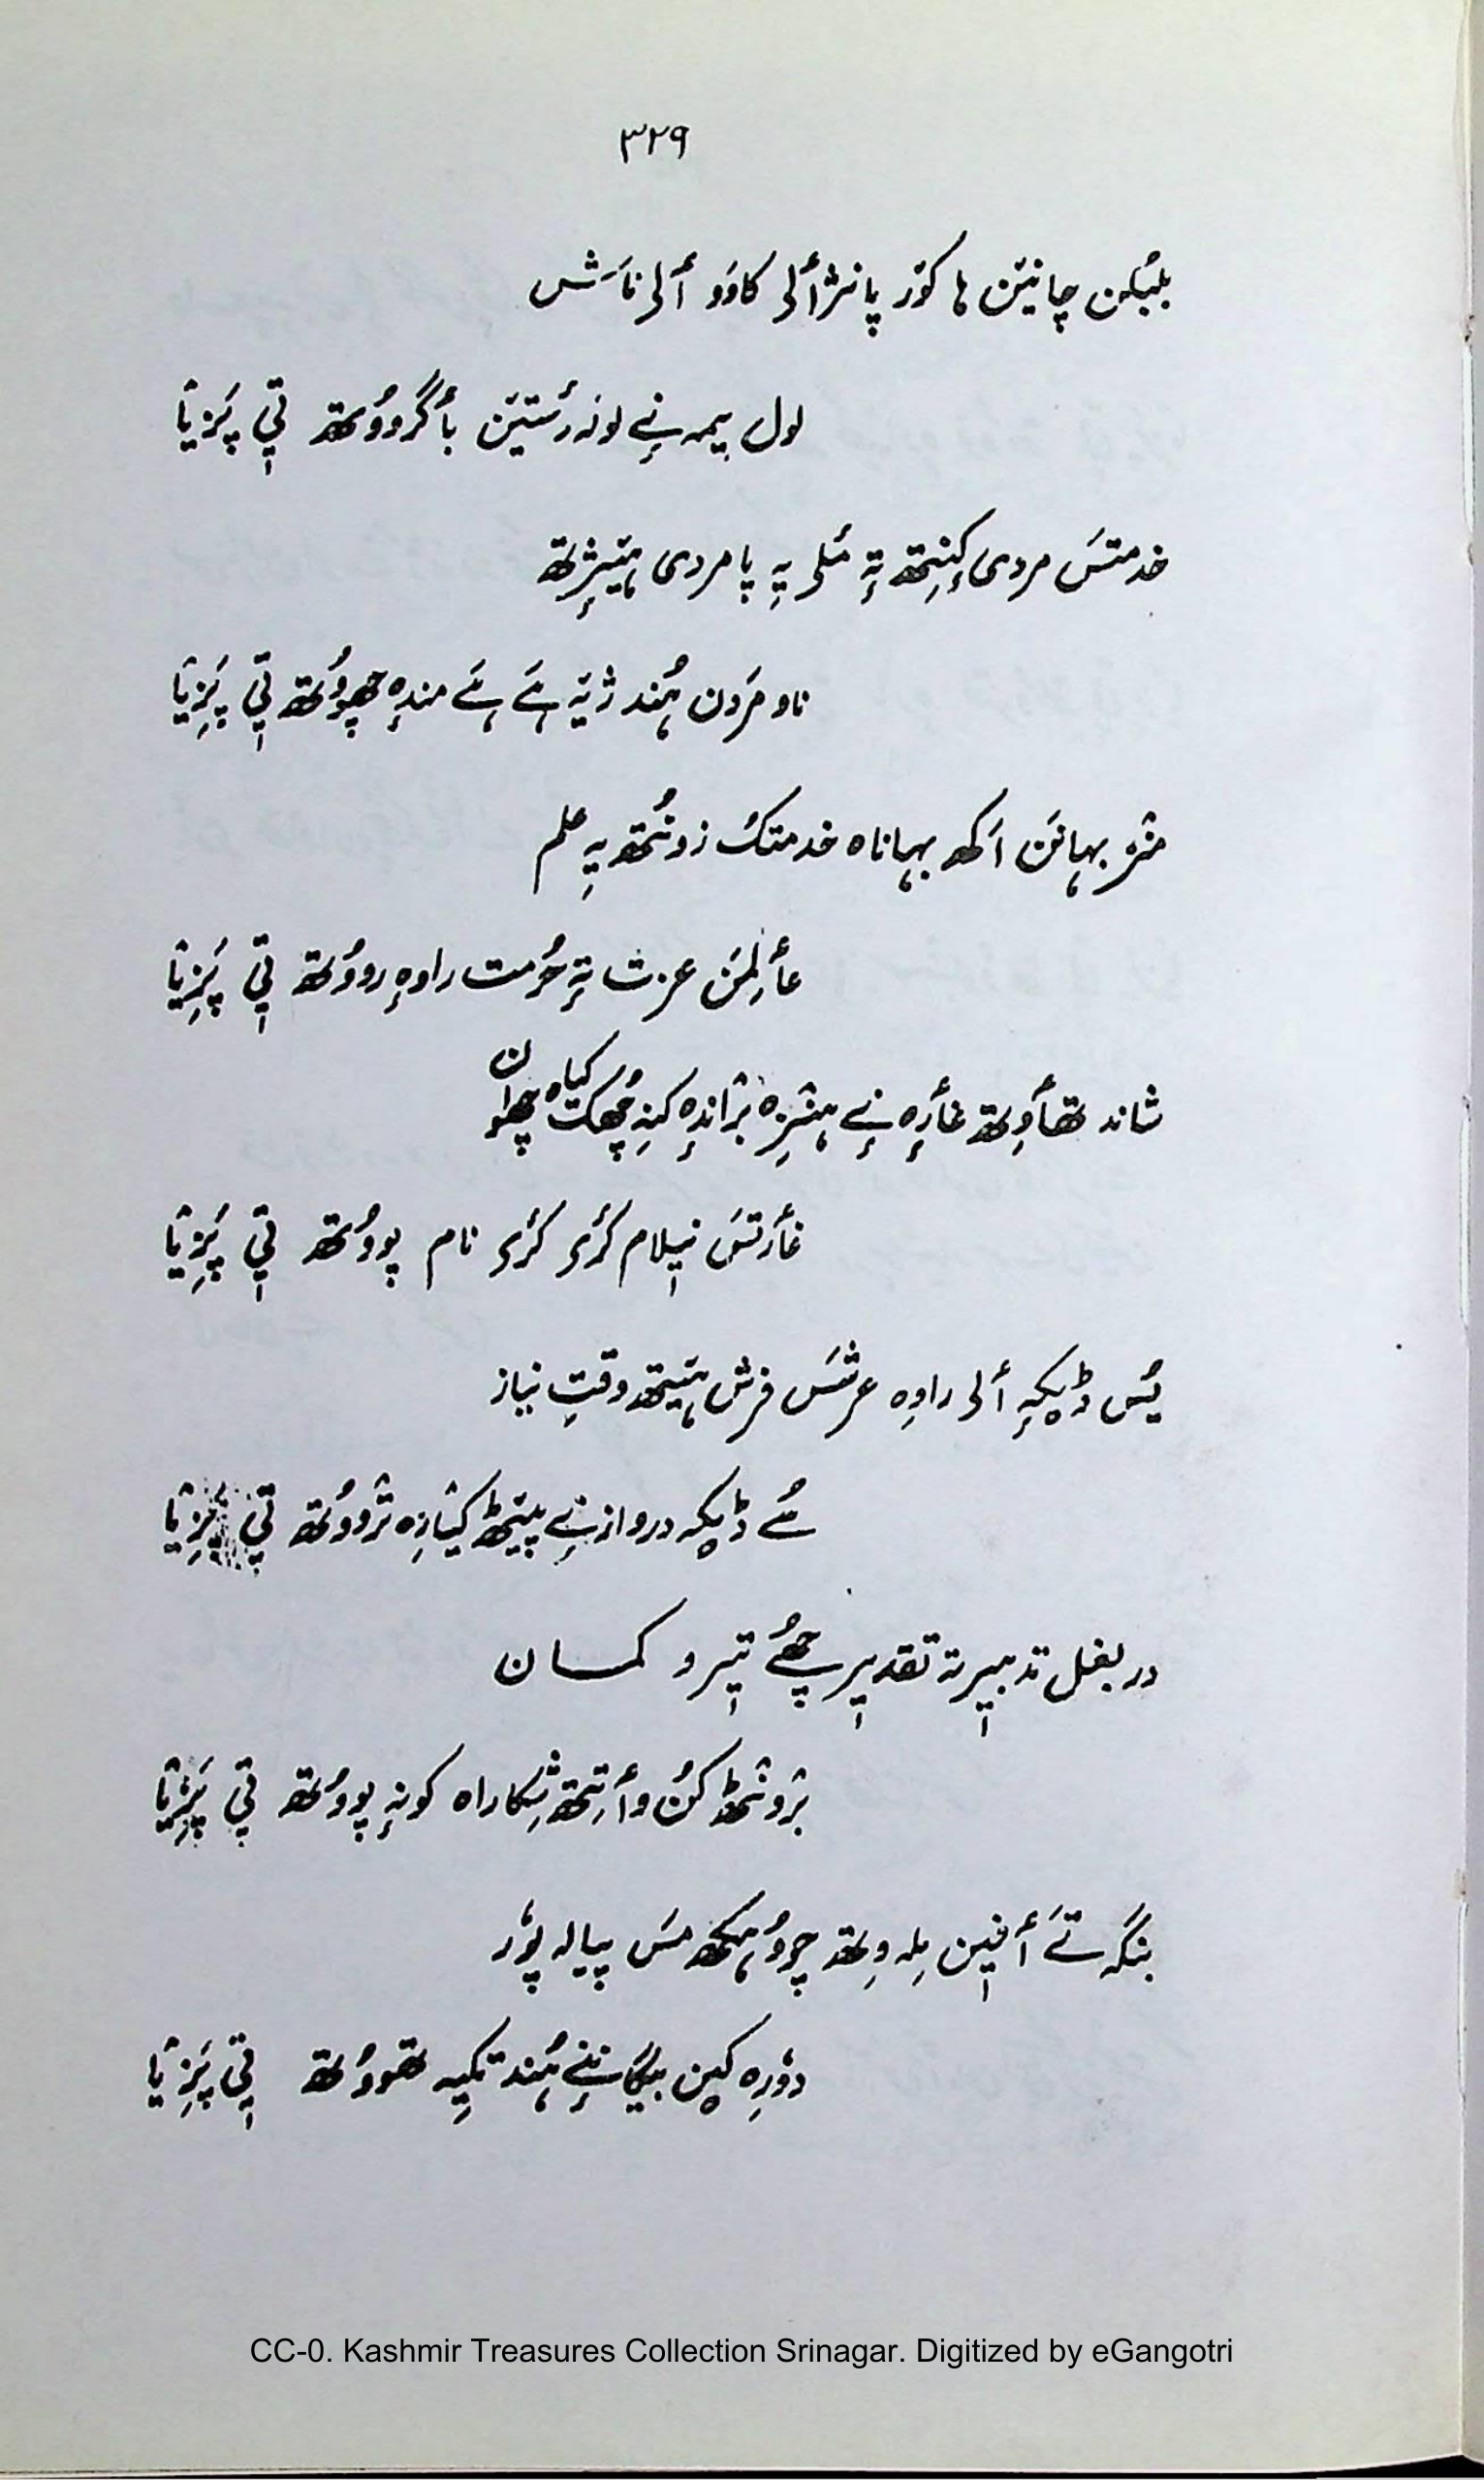 ۳۲۹
بلبُلن چانیَن ہا کوٚر پانژألی کاوَو ألی ناَشس
لول یمہ نٕے لونہ رٔستیَن بأگروُوتھ تی پَزیا
خدمتَس مردی کٕنِتھ تہٕ مٔلی یہِ پامردی ہیٚژِتھ
ناو مَردن ہُند ژیٚہ ہَے ہَے مندٕہ چھوُوتھ تی پَزِیا
منٛز بہانَن اَکھ بہاناہ خدمتک زونُتھ یہِ علم
عألِمَن عزت تہٕ حُرمت راوہٕ روُوتھ تی پَزِیا
شاند تھأوِتھ غأرٕہ نٕے ہنٛزِہ برٛاندٕہ کنہِ چھُکھ کیاہ چھوان
غأرتَس نیٖلام کٔرۍ کٔرۍ نام پووُتھ تی پَزِیا
یُس ڈیکہٕ ألی راوِہ عرشَس فرش ہیٚتھ وقتِ نیاز
سُے ڈیکہ دروازنٕے پیٚٹھ کیازِہ ترٛووُتھ تی پَزِیا
در بغل تدبیٖر تہ تقدیٖر چھُے تیٖر و کمان
برٛونٹھ کُن وأتِتھ شِکاراہ کونہٕ پووُتھ تی پَزِیا
بنگہ تَے أفیٖن مِلہ وِتھ چوُ ہکھ مَس پیالہ پوٗر
دوٗرِہ کین بیگانٕنے ہُند تکیہ تھووُتھ تی پَزِیا
CC-0. Kashmir Treasures Collection Srinagar. Digitized by eGangotri